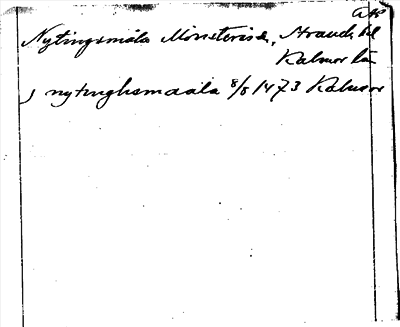 AK
Nytingsmåla Mönsterås s, Strands hd
Kalmar län
j nytinghsmaala 8/8 1473 Kalmar